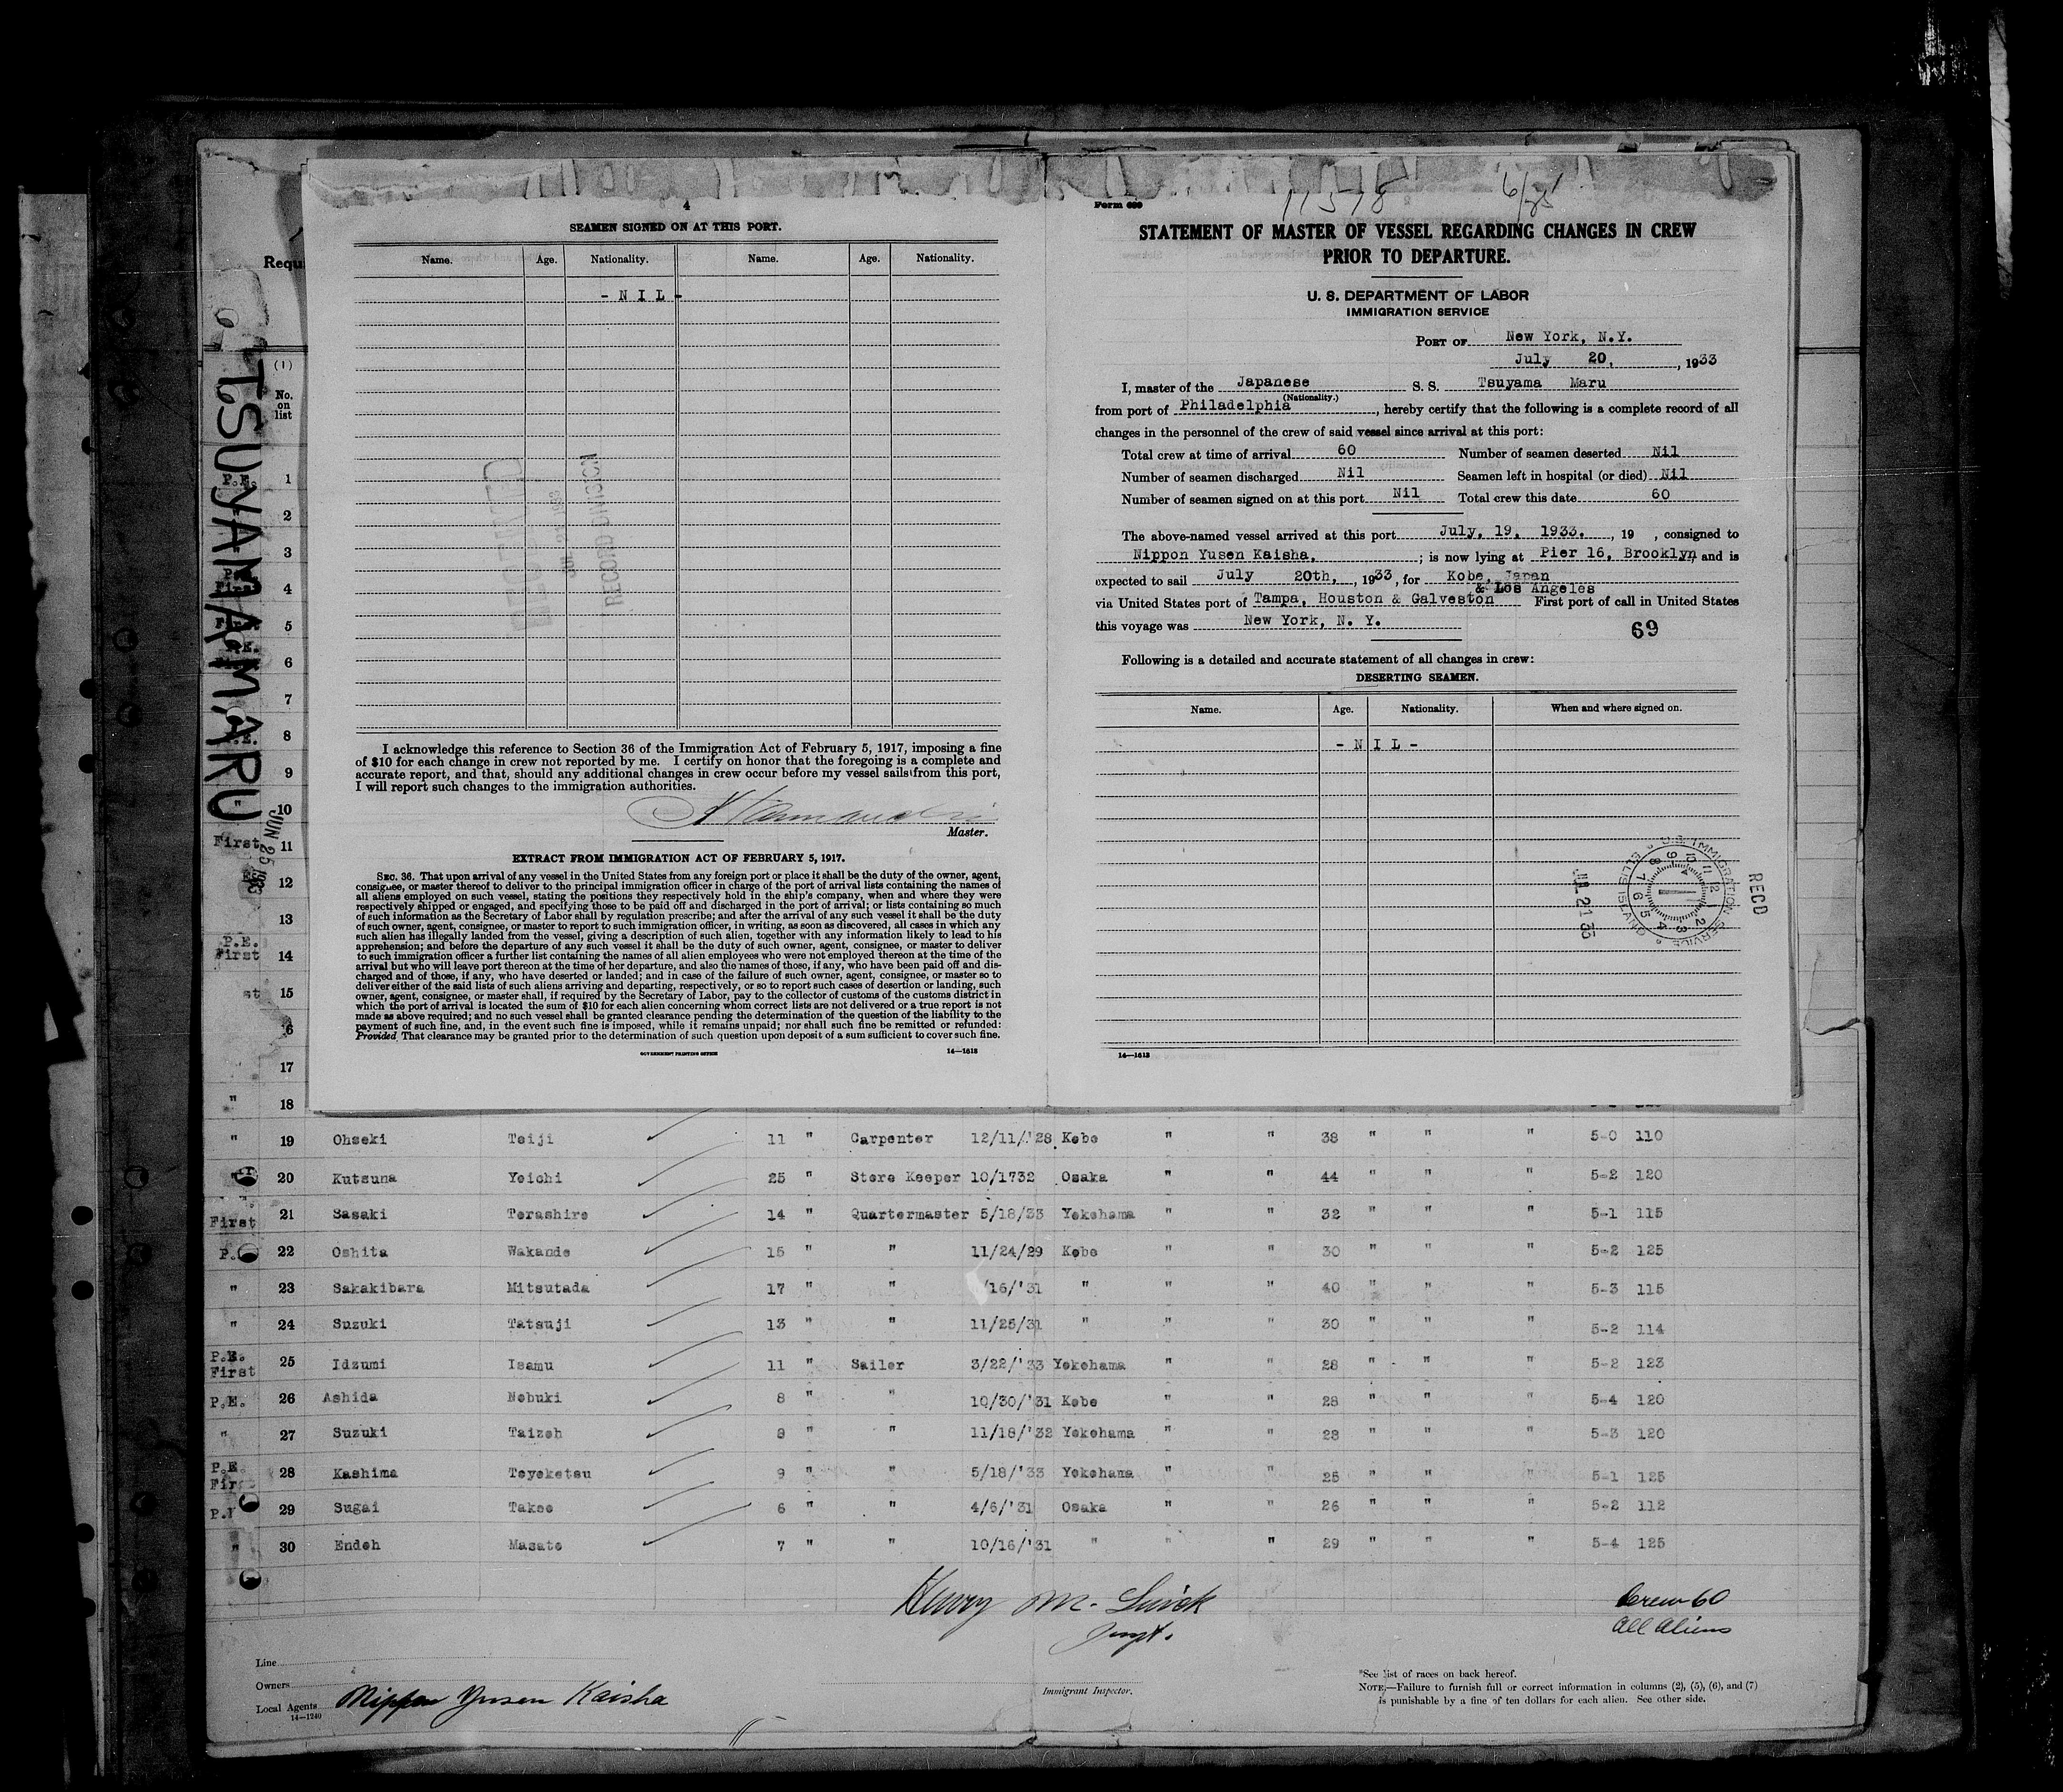 4
SEAMEN SIGNED ON AT THIS PORT.
Name. Age. Nationality. Name. Age. Nationality.
- N I L -
RECORD DIVISION
I acknowledge this reference to Section 36 of the Immigration Act of February 5, 1917, imposing a fine
of $10 for each change in crew not reported by me. I certify on honor that the foregoing is a complete and
accurate report, and that, should any additional changes in crew occur before my vessel sails from this port,
I will report such changes to the immigration authorities.
Master.
EXTRACT FROM IMMIGRATION ACT OF FEBRUARY 5, 1917.
SEC. 36. That upon arrival of any vessel in the United States from any foreign port or place it shall be the duty of the owner, agent,
consignee, or master thereof to deliver to the principal immigration officer in charge of the port of arrival lists containing the names of
all aliens employed on such vessel, stating the positions they respectively hold in the ship's company, when and where they were
respectively shipped or engaged, and specifying those to be paid off and discharged in the port of arrival; or lists containing so much
of such information as the Secretary of Labor shall by regulation prescribe; and after the arrival of any such vessel it shall be the duty
of such owner, agent, consignee, or master to report to such immigration officer, in writing, as soon as discovered, all cases in which any
such alien has illegally landed from the vessel, giving a description of such alien, together with any information likely to lead to his
apprehension; and before the departure of any such vessel it shall be the duty of such owner, agent, consignee, or master to deliver
to such immigration officer a further list containing the names of all alien employees who were not employed thereon at the time of the
arrival but who will leave port thereon at the time of her departure, and also the names of those, if any, who have been paid off and dis-
charged and of those, if any, who have deserted or landed; and in case of the failure of such owner, agent, consignee, or master so to
deliver either of the said lists of such aliens arriving and departing, respectively, or so to report such cases of desertion or landing, such
owner, agent, consignee, or master shall, if required by the Secretary of Labor, pay to the collector of customs of the customs district in
which the port of arrival is located the sum of $10 for each alien concerning whom correct lists are not delivered or a true report is not
made as above required; and no such vessel shall be granted clearance pending the determination of the question of the liability to the
payment of such fine, and, in the event such fine is imposed, while it remains unpaid; nor shall such fine be remitted or refunded:
Provided, That clearance may be granted prior to the determination of such question upon deposit of a sum sufficient to cover such fine.
GOVERNMENT PRINTING OFFICE 14—1613
11578
Form 689
STATEMENT OF MASTER OF VESSEL REGARDING CHANGES IN CREW
PRIOR TO DEPARTURE.
U. S. DEPARTMENT OF LABOR
IMMIGRATION SERVICE
PORT OF New York, N.Y.
July 20, , 1933
I, master of the Japanese S. S. Tsuyama Maru
(Nationality.)
from port of Philadelphia, hereby certify that the following is a complete record of all
changes in the personnel of the crew of said vessel since arrival at this port:
Total crew at time of arrival 60 Number of seamen deserted Nil
Number of seamen discharged Nil Seamen left in hospital (or died) Nil
Number of seamen signed on at this port Nil Total crew this date 60
The above-named vessel arrived at this port July, 19, 1933. , 19 , consigned to
Nippon Yusen Kaisha, ; is now lying at Pier 16, Brooklyn, and is
expected to sail July 20th, , 1933, for Kobe, Japan
& Los Angeles
via United States port of Tampa, Houston & Galveston First port of call in United States
this voyage was New York, N. Y.
69
Following is a detailed and accurate statement of all changes in crew:
DESERTING SEAMEN.
Name. Age. Nationality. When and where signed on.
- N I L -
U.S. IMMIGRATION SERVICE ELLIS ISLAND
RECD
JUL 21 33
14—1613
TSUYAMA MARU
JUN 25 1933
Requ
(1)
No.
on
list
P.E. 1
2
3
4
5
6
7
8
9
10
First 11
12
13
P.E.
First 14
st 15
6
17
" 18
" 19 Ohseki Teiji 11 " Carpenter 12/11/'28 Kobe " " 38 " " " 5-0 110
20 Kutsuna Yoichi 25 " Store Keeper 10/1732 Osaka " " 44 " " " 5-2 120
First 21 Sasaki Terashiro 14 " Quartermaster 5/18/33 Yokohama " " 32 " " " 5-1 115
P. 22 Oshita Wakando 15 " " 11/24/29 Kobe " " 30 " " " 5-2 125
" 23 Sakakibara Mitsutada 17 " " /16/'31 " " " 40 " " " 5-3 115
" 24 Suzuki Tatsuji 13 " " 11/25/31 " " " 30 " " " 5-2 114
P.E.
First 25 Idzumi Isamu 11 " Sailor 3/22/'33 Yokohama " " 28 " " " 5-2 123
P.E. 26 Ashida Nobuki 8 " " 10/30/'31 Kobe " " 28 " " " 5-4 120
" 27 Suzuki Taizoh 9 " " 11/18/'32 Yokohama " " 28 " " " 5-3 120
P.E
First 28 Kashima Toyoketsu 9 " " 5/18/'33 Yokohama " " 25 " " " 5-1 125
P. 29 Sugai Takeo 6 " " 4/6/'31 Osaka " " 26 " " " 5-2 112
" 30 Endoh Masato 7 " " 10/16/'31 " " " 29 " " " 5-4 125
Crew 60
All Aliens
Line
Owners
Local Agents Nippon Yusen Kaisha
14—1240
Immigrant Inspector.
*See list of races on back hereof.
NOTE.—Failure to furnish full or correct information in columns (2), (5), (6), and (7)
is punishable by a fine of ten dollars for each alien. See other side.